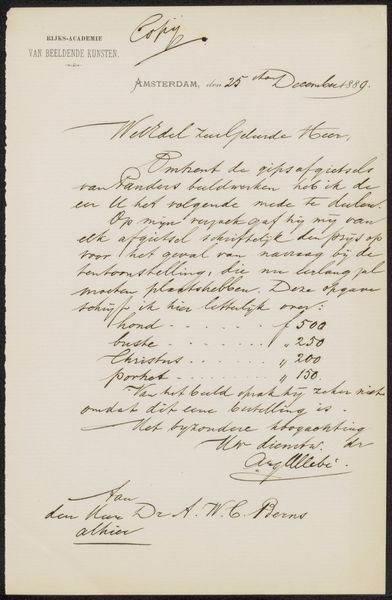 Copij.
RIJKS-ACADEMIE
VAN BEELDENDE KUNSTEN.
AMSTERDAM, den 25 sten December 1889.
WelEdel zeergeleerde Heer,
Omtrent de gipsafgietsels
van Zanders beeldwerken heb ik de
eer U het volgende mede te deelen.
Op mijn verzoek gaf hij mij van
elk afgietsel schriftelijk den prijs op
voor het geval van navraag bij de
tentoonstelling, die nu eerlang zal
moeten plaatshebben. Deze opgave
schrijf ik hier letterlijk over:
hond . . . . . . . . f 500
buste . . . . . . . . „ 250
Christus . . . . . . . „ 200
portret . . . . . . . . „ 150.
Van het beeld sprak hij zeker niet
omdat dit eene bestelling is.
Met byzondere hoogachting
Uw dienstw. dr
Aug Allebé.
Aan
den Heer Dr A. W. C. Berns
alhier